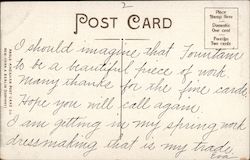 2
POST CARD
Place
Stamp Here
Domestic
One cent
Foreign
Two cents
I should imagine that Fountain
to be a beautiful piece of work
Many thanks for the fine cards.
Hope you will call again.
I am getting in my spring work
dressmaking that is my trade.
Eva